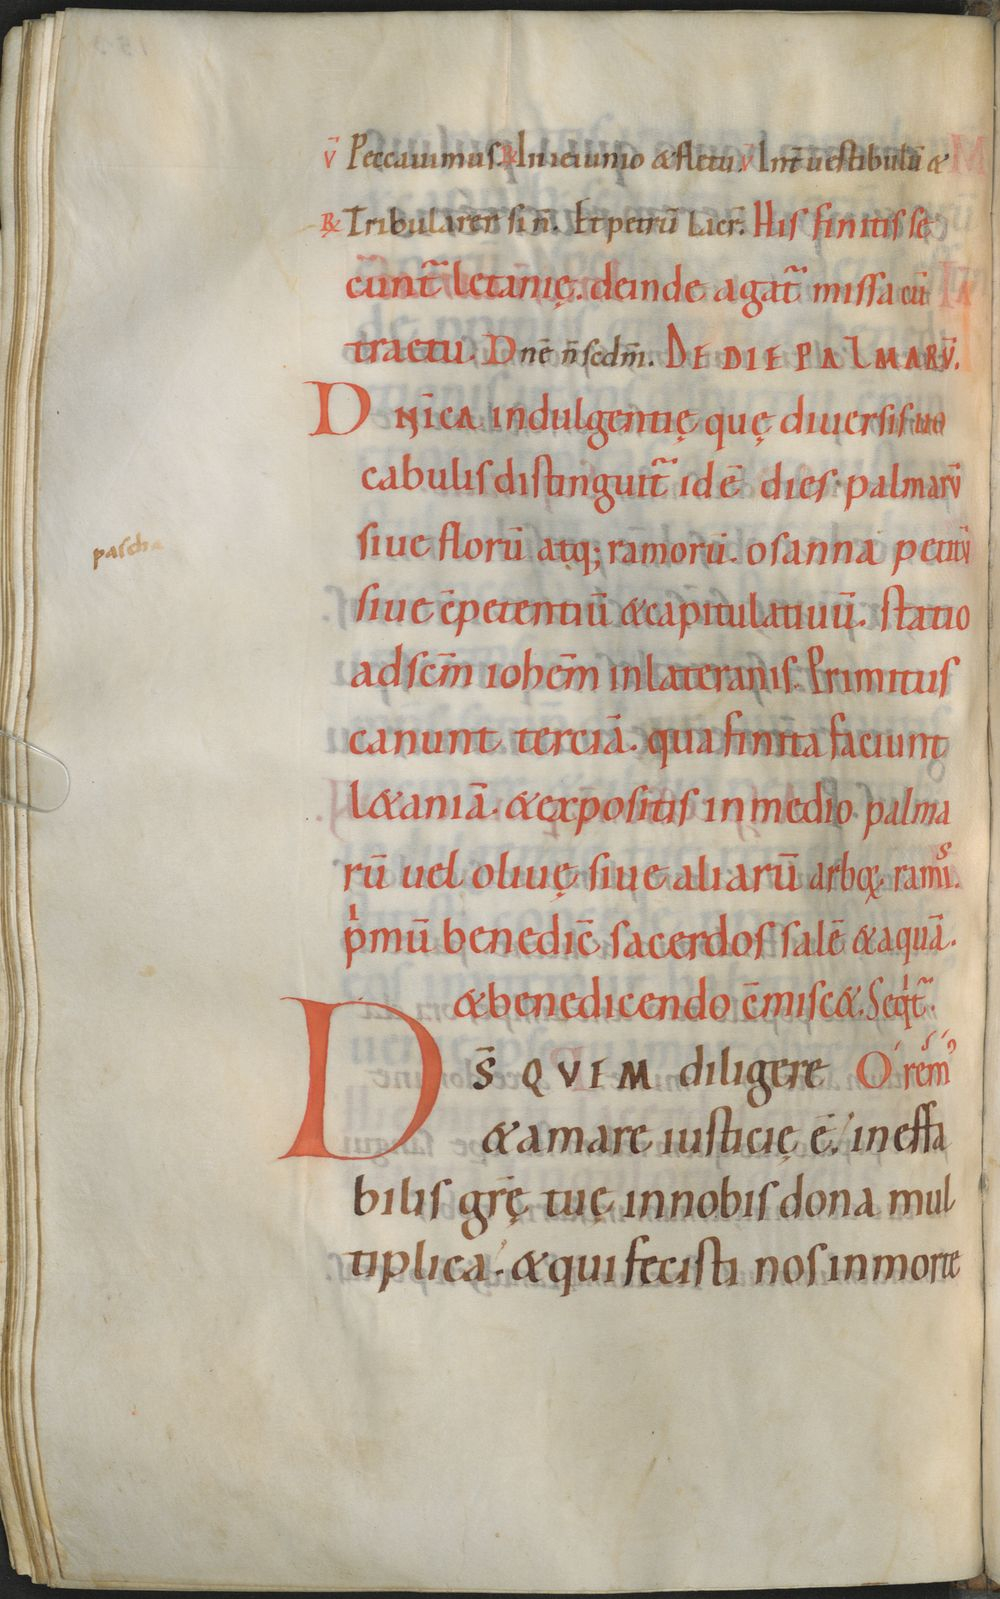 v̄ Peccauimus. R̸ In ieiunio & fletu. v̄ Int̄ uestibulū &
R̸ Tribularer si n̄. Et petrū Lacr̄. His finitis se
cunt̄ letanię. deinde agat̄ missa cū
tractu. Dnē n̄ scdm̄. DE DIE PALMARV̄.
DN̄ICA indulgentię quę diuersis uo
cabulis distinguit̄ idē dies. palmarū
siue florū atq; ramorū. osanna petitū
pascha
siue cōpetentiū & capitulatiuū. statio
ad scm̄ iohem̄ in lateranis. Primitus
canunt terciā. qua finita faciunt
l&aniā. & expositis in medio palma
rū uel oliuę siue aliarū arboꝝ ramis.
pͥmū benedic̄ sacerdos salē & aquā.
& benedicendo cōmisc&. Seqͥt̄.
DS̄ QVEM diligere Orem̄
& amare iusticię ē. ineffa
bilis grę̄ tuę in nobis dona mul
tiplica. & qui fecisti nos in morte